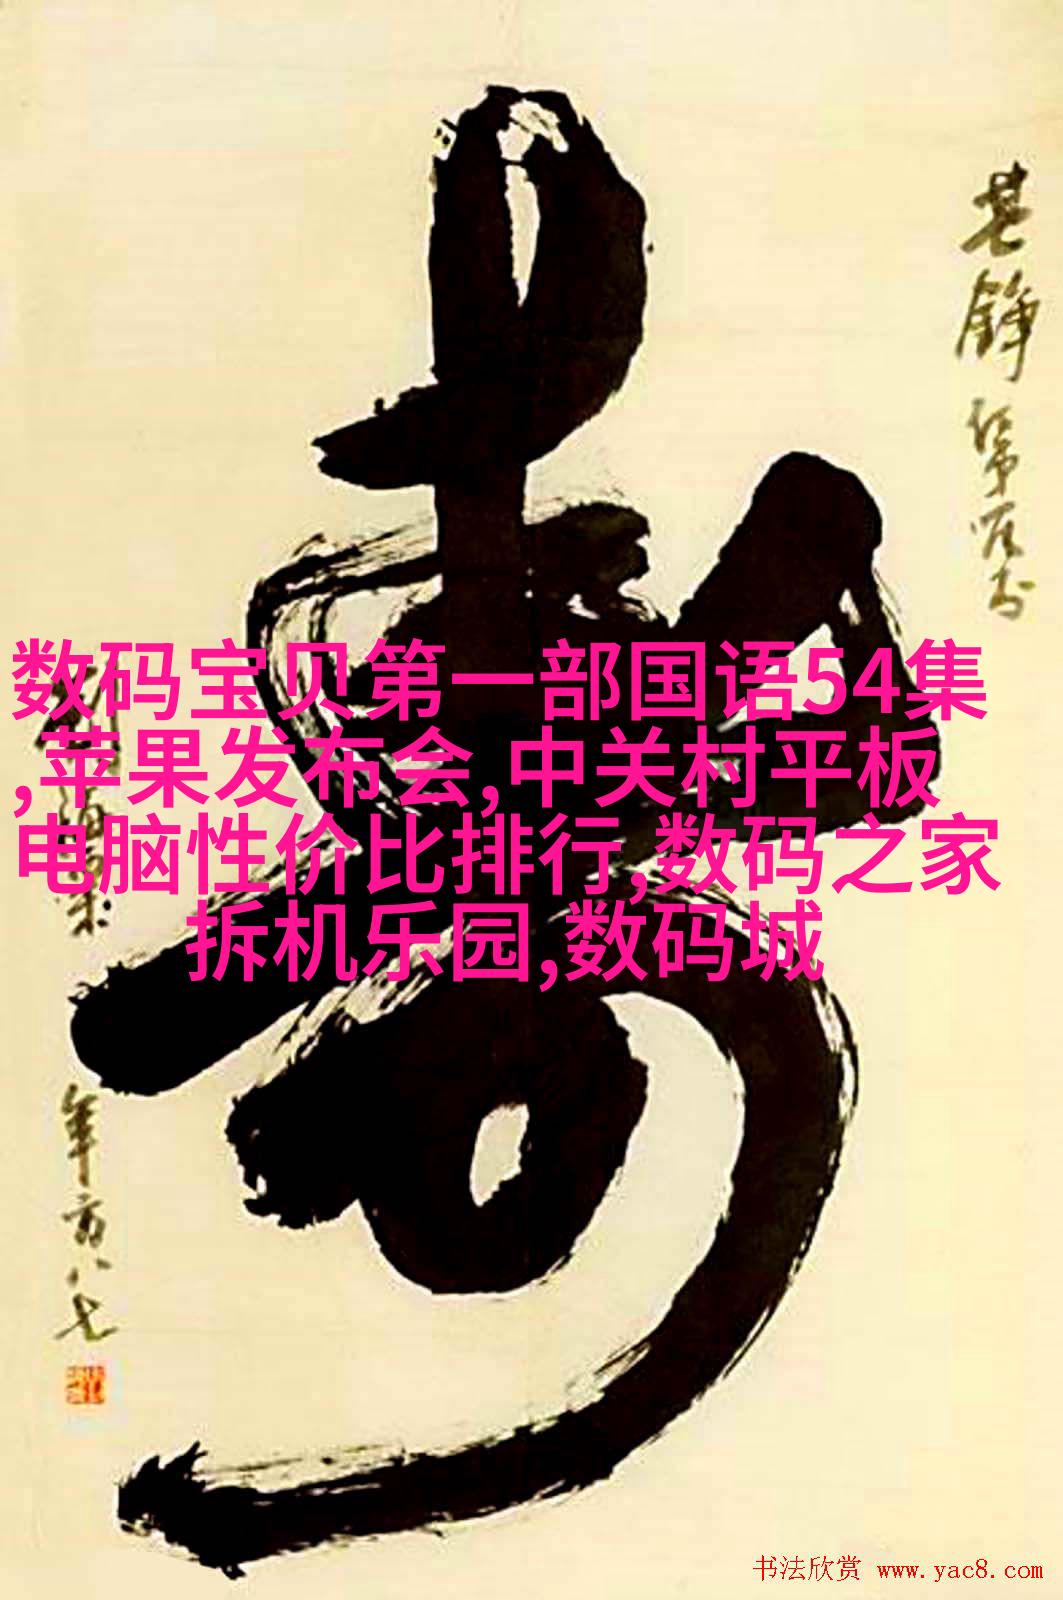 寿
其铮
年方八七
数码宝贝第一部国语54集
,苹果发布会,中关村平板
电脑性价比排行,数码之家
拆机乐园,数码城
书法欣赏 www.yac8.com